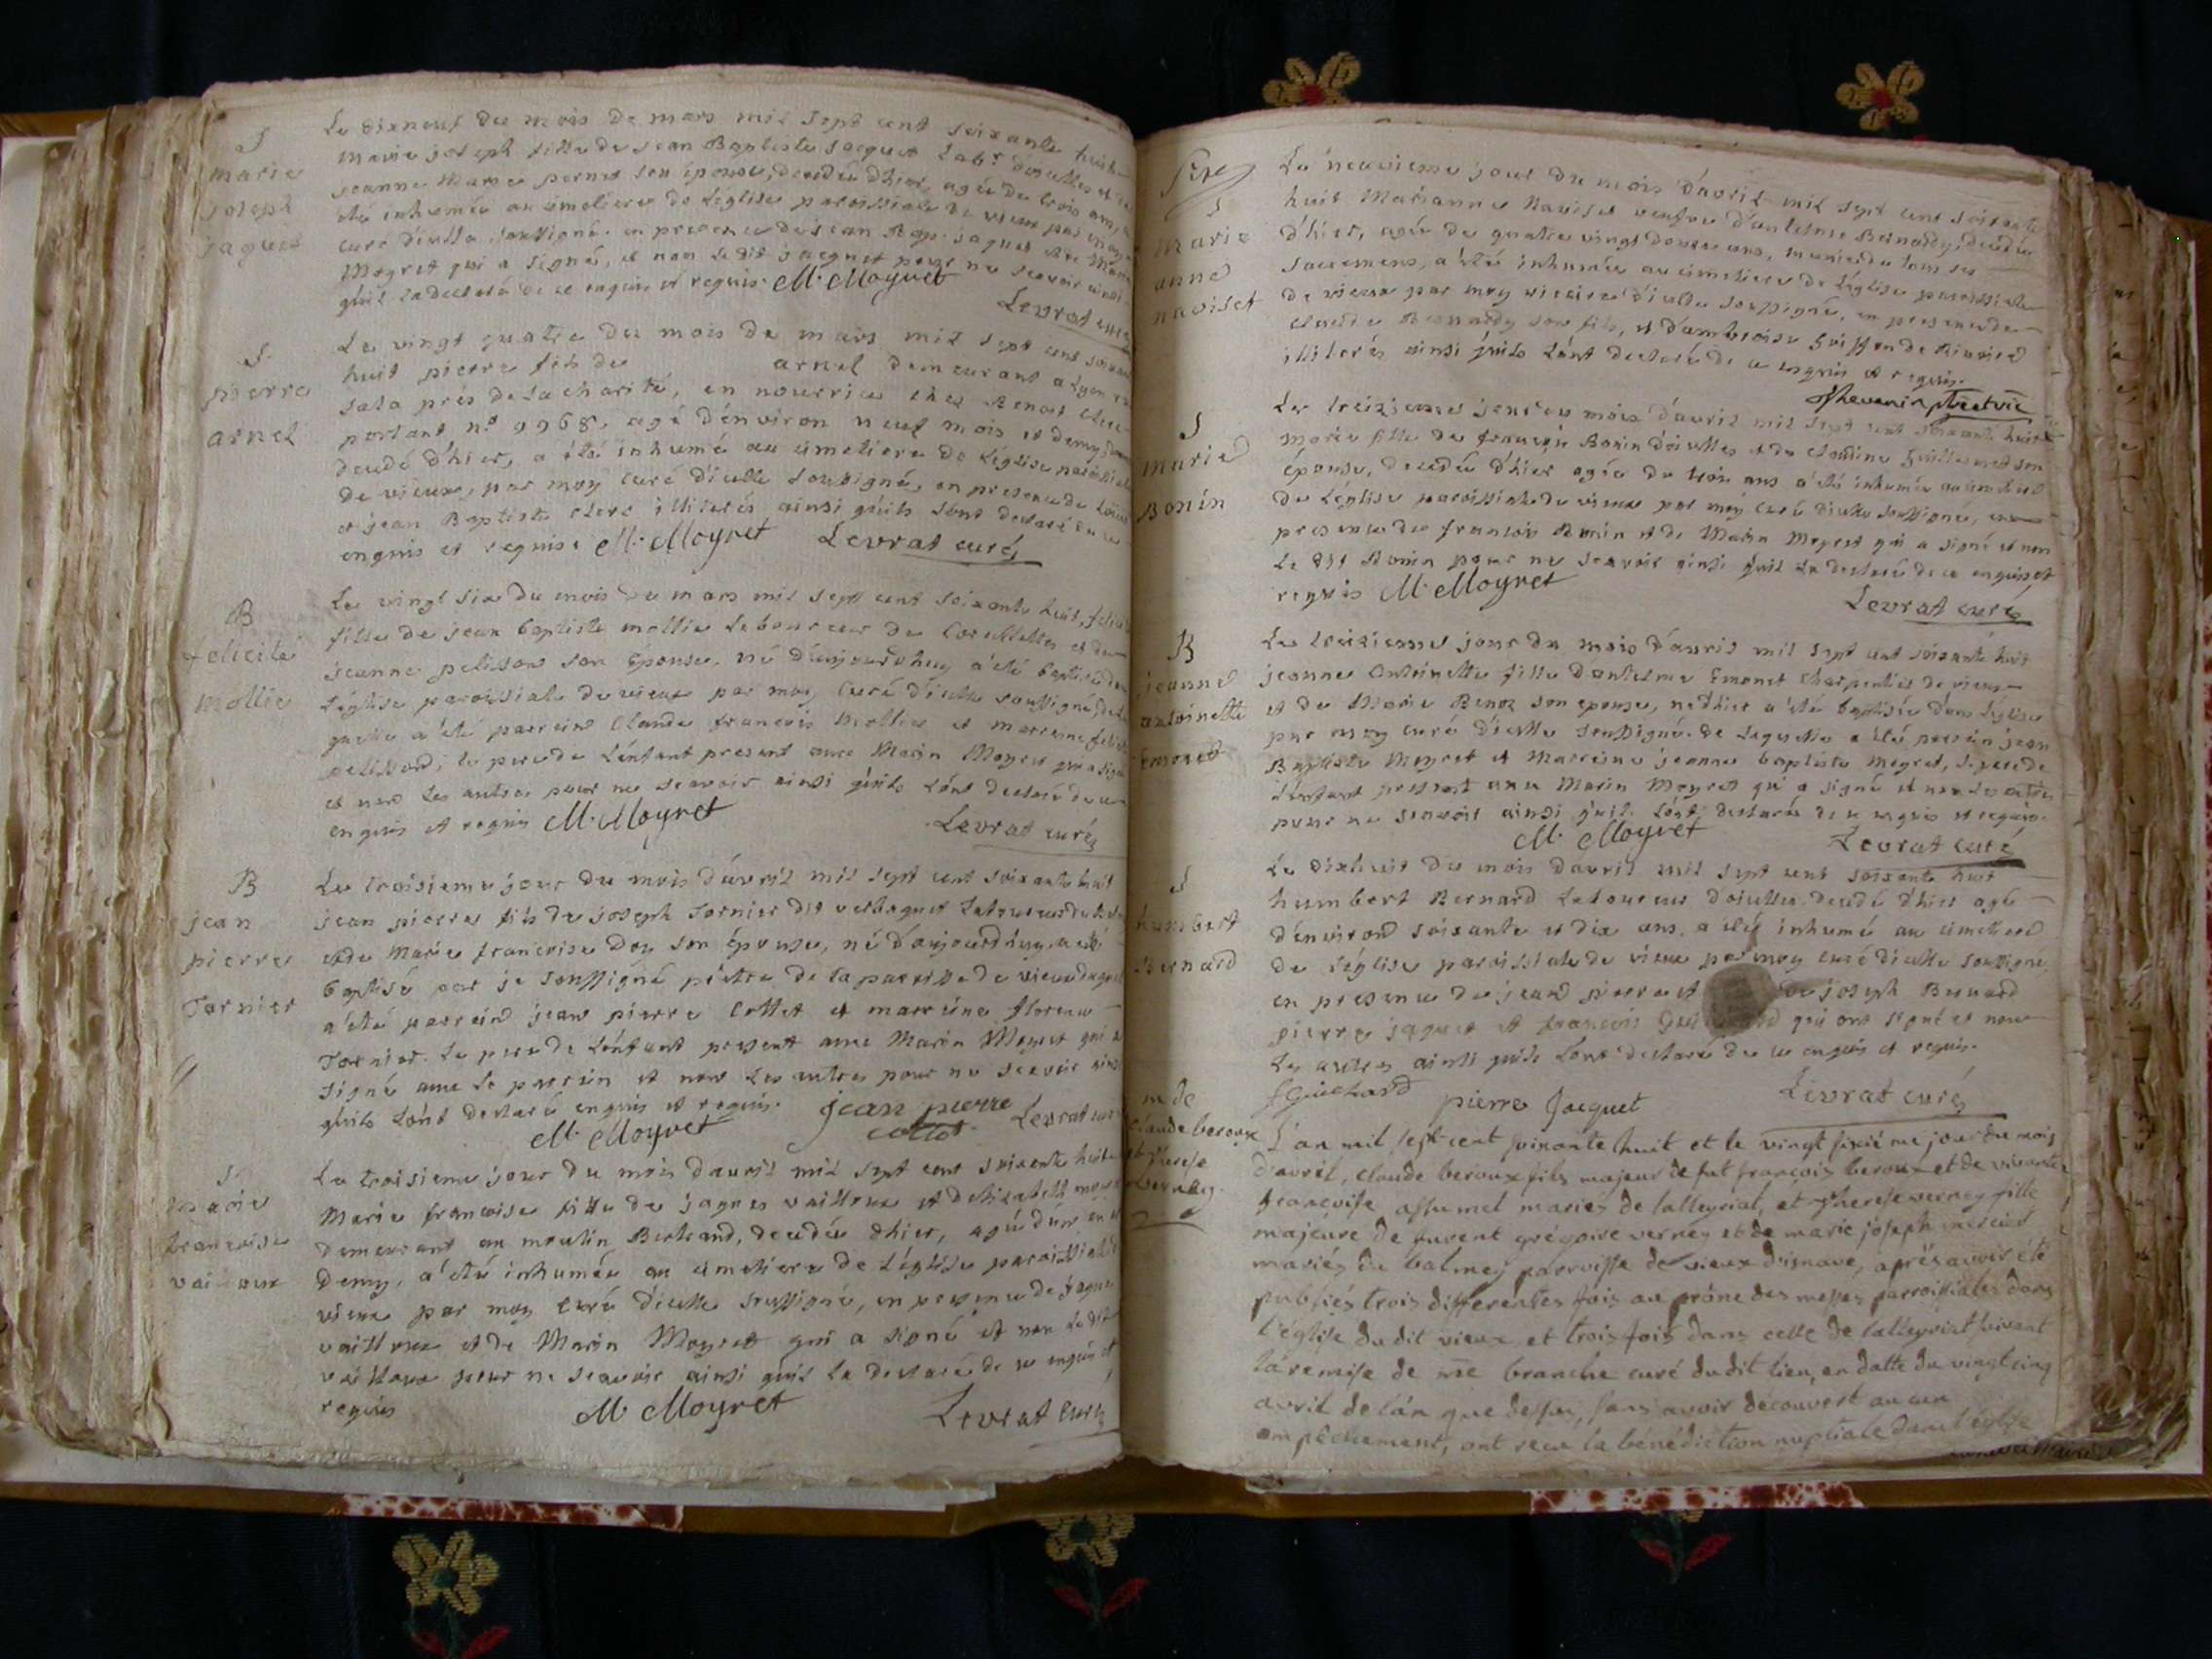 S
marie
joseph
jaquet
Le dixneuf du mois de mars mil sept cent soixante huit
marie joseph fille de jean Baptiste jacquet Labr d'icelles et de
jeanne Marie pernet son épouse, decedée d'hier, agée de trois ans, a
été inhumée au cimetiere de L'église paroissiale de vieux par moy
curé d'icelle soussigné. en presence de jean Bap. jaquet et de Marin
Moyret qui a signé, et non ledit jacquet pour ne scavoir ainsi
qu'il la declaré de ce enquis et requis. M. Moyret
Levrat curé
S
pierre
arnel
Le vingt quatre du mois de mars mil sept cent soixante
huit pierre fils de arnel demeurant a Lyon
prés de la charité, en nourrice chez Benoit Clerc
portant n.o agé d'environ neuf mois et demy,
decedé d'hier, a été inhumé au cimetiere de L'église paroissiale
de vieux, par moy curé d'icelle soussigné, en presence de
et jean Baptiste clerc illiterés ainsi qu'ils l'ont declaré de ce
enquis et requis. M. Moyret Levrat curé
B
felicité
mollie
Le vingt six du mois de mars mil sept cent soixante huit, felicité
fille de jean baptiste mollie Laboureur de et de
jeanne pelisson son épouse, né d'aujourdhuy a été baptisée dans
L'église paroissiale de vieux par moy curé d'icelle soussigné, de la
quelle a été parrein Claude francois mollie et marreine felicité
pelisson, le pere de L'enfant present avec Marin Moyret qui a signé
et non les autres pour ne scavoir ainsi qu'ils l'ont declaré de ce
enquis et requis M. Moyret
Levrat curé
B
jean
pierre
Tornier
Le troisieme jour du mois d'avril mil sept cent soixante huit
jean pierre fils de joseph Tornier dit Laboureur
et de Marie francoise Don son épouse, né d'aujourdhuy, a été
baptisé par je soussigné prêtre de la paroisse de vieux duquel
a été parrein jean pierre Collet et marreine
Tornier. Le pere de L'enfant present avec Marin Moyret qui a
signé avec le parrein et non les autres pour ne scavoir ainsi
qu'ils l'ont declaré enquis et requis. jean pierre
M. Moyret collet Levrat curé
S.
Marie
francoise
vailloux
Le troisieme jour du mois d'avril mil sept cent soixante huit
Marie francoise fille de jaques vailloux et d'elizabeth
demeurant au moulin Bertrand, decedée d'hier, agée d'un an et
demy, a été inhumée au cimetiere de L'église paroissiale de
vieux par moy curé d'icelle soussigné, en presence de jaques
vailloux et de Marin Moyret qui a signé et non ledit
vailloux pour ne scavoir ainsi qu'il la declaré de ce enquis et
requis M. Moyret Levrat curé
S
Marie
anne
naviset
Le neuvieme jour du mois d'avril mil sept cent soixante
huit Marianne Naviset veufve d'antelme Bernardy, decedée
d'hier, agée de quatre vingt douze ans, munie de tous ses
sacremens, a été inhumée au cimetiere de L'église paroissiale
de vieux par moy vicaire d'icelle soussigné, en presence de
claude Bernardy son fils, et d'ambroise de
illiterés ainsi qu'ils l'ont declaré de ce enquis et requis.
Thevenin
S
marie
Bonin
Le treizieme jour du mois d'avril mil sept cent soixante huit
Marie fille de francois Bonin d'icelles et de claudine son
épouse, decedée d'hier agée de trois ans a été inhumée au cimetiere
de L'église paroissiale de vieux par moy curé d'icelle soussigné, en
presence de francois Bonin et de Marin Moyret qui a signé et non
Le dit Bonin pour ne scavoir ainsi qu'il la declaré de ce enquis et
requis M. Moyret
Levrat curé
B
jeanne
antoinette
Emonet
Le treizieme jour du mois d'avril mil sept cent soixante huit
jeanne antoinette fille d'antelme Emonet charpentier de vieux
et de Marie Benoz son epouse, né d'hier a été baptisée dans L'église
par moy curé d'icelle soussigné. de laquelle a été parrein jean
Baptiste Moyret et Marreine jeanne baptiste moyret, le pere de
L'enfant present avec Marin Moyret qui a signé et non les autres
pour ne scavoir ainsi qu'ils l'ont declaré de ce enquis et requis.
M. Moyret Levrat curé
S
humbert
Bernard
Le dixhuit du mois d'avril mil sept cent soixante huit
humbert Bernard Laboureur d'icelles decedé d'hier agé
d'environ soixante et dix ans, a été inhumé au cimetiere
de L'église paroissiale de vieux par moy curé d'icelle soussigné
en presence de jean pierre et joseph Bernard
pierre jaquet et francois qui ont signé et non
Les autres ainsi qu'ils l'ont declaré de ce enquis et requis.
f Guichard pierre Jacquet Levrat curé
m de
claude beroux
et therese
verney
L'an mil sept cent soixante huit et le vingt sixieme jour du mois
d'avril, claude beroux fils majeur de fut françois beroux et de vivante
françoise assumel mariés de lalleyriat, et therese verney fille
majeure de furent grégoire verney et de marie joseph mercier
mariés du balmey parroisse de vieux d'isnave, après avoir été
publiés trois differentes fois au prône des messes parroissiales dans
l'église du dit vieux et trois fois dans celle de lalleyriat suivant
la remise de me branche curé du dit lieu, en datte du vingt cinq
avril de l'an que dessus, sans avoir découvert aucun
empêchement, ont reçu la bénédiction nuptiale dans l'église